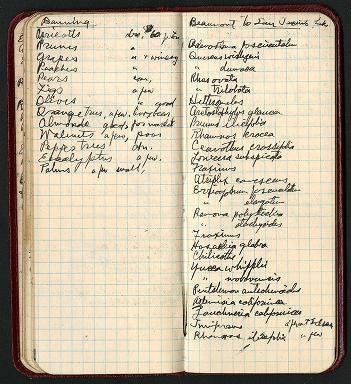 Banning
Apricots
Prunes
Grapes " " winery
Peaches
Pears
Figs a few
Olives " good
Orange trees, a few,
Almonds good, for market
Walnuts a few, poor
Pepper trees
Eucalyptus a few.
Palms a few small,
Beaumont to San Jacinto
Adenostoma fasciculatum
Quercus
" dumosa
Rhus ovata
" trilobata
Heteromeles
Arctostaphylos glauca
Prunus ilicifolia
Rhamnus crocea
Ceanothus crassifolius
Lonicera subspicata
Fraxinus
Atriplex canescens
Eriogonum fasciculatum
" elongatum
Ramona polystachya
" stachyoides
Fraxinus
Hosackia glabra
Chilicothe
Yucca whipplei
" mohavensis
Pentstemon antirrhinoides
Artemisia californica
Zauschneria californica
Juniperus
Rhamnus ilicifolia " few